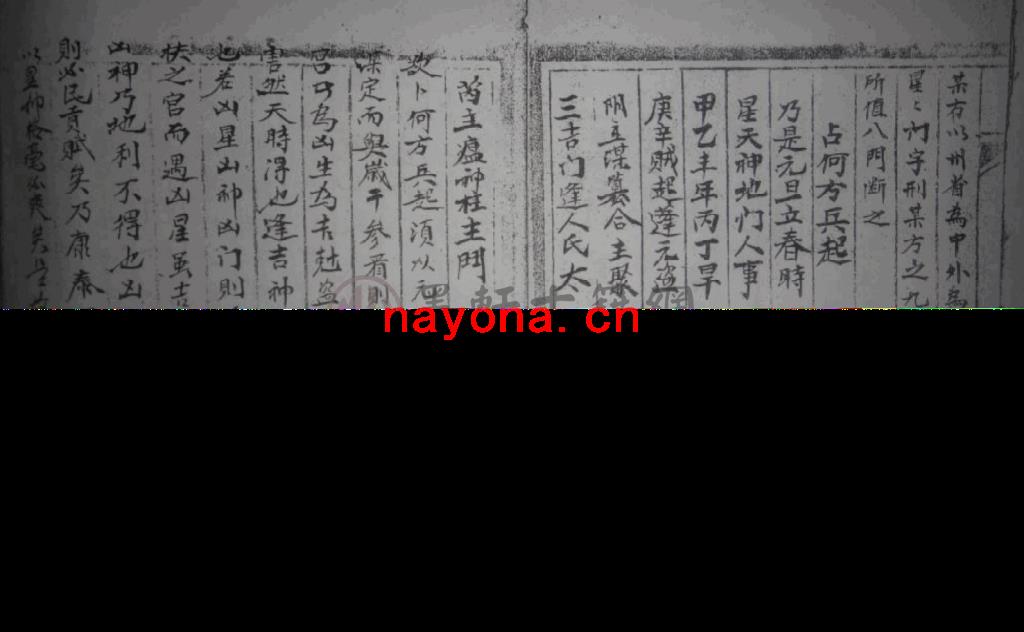 某右以州省為中外為
星〻門字刑某方之九
所值八門断之
占何方兵起
乃是元旦立春時
星天神地门人事
甲乙丰年丙丁旱
庚辛贼起蓬元盗
陰主谋篡合主聚
三吉门逢人民太
芮主瘟神柱主鬥
欲卜何方兵起須以元
谋定而與歲干參看則
宫可為凶生為吉尅盗
害然天時得也逢吉神
也若凶星凶神凶门則
扶之官而遇凶星虽吉
凶神乃地利不得也凶
則必民貢賦矣乃康泰
以星神
nayona.cn